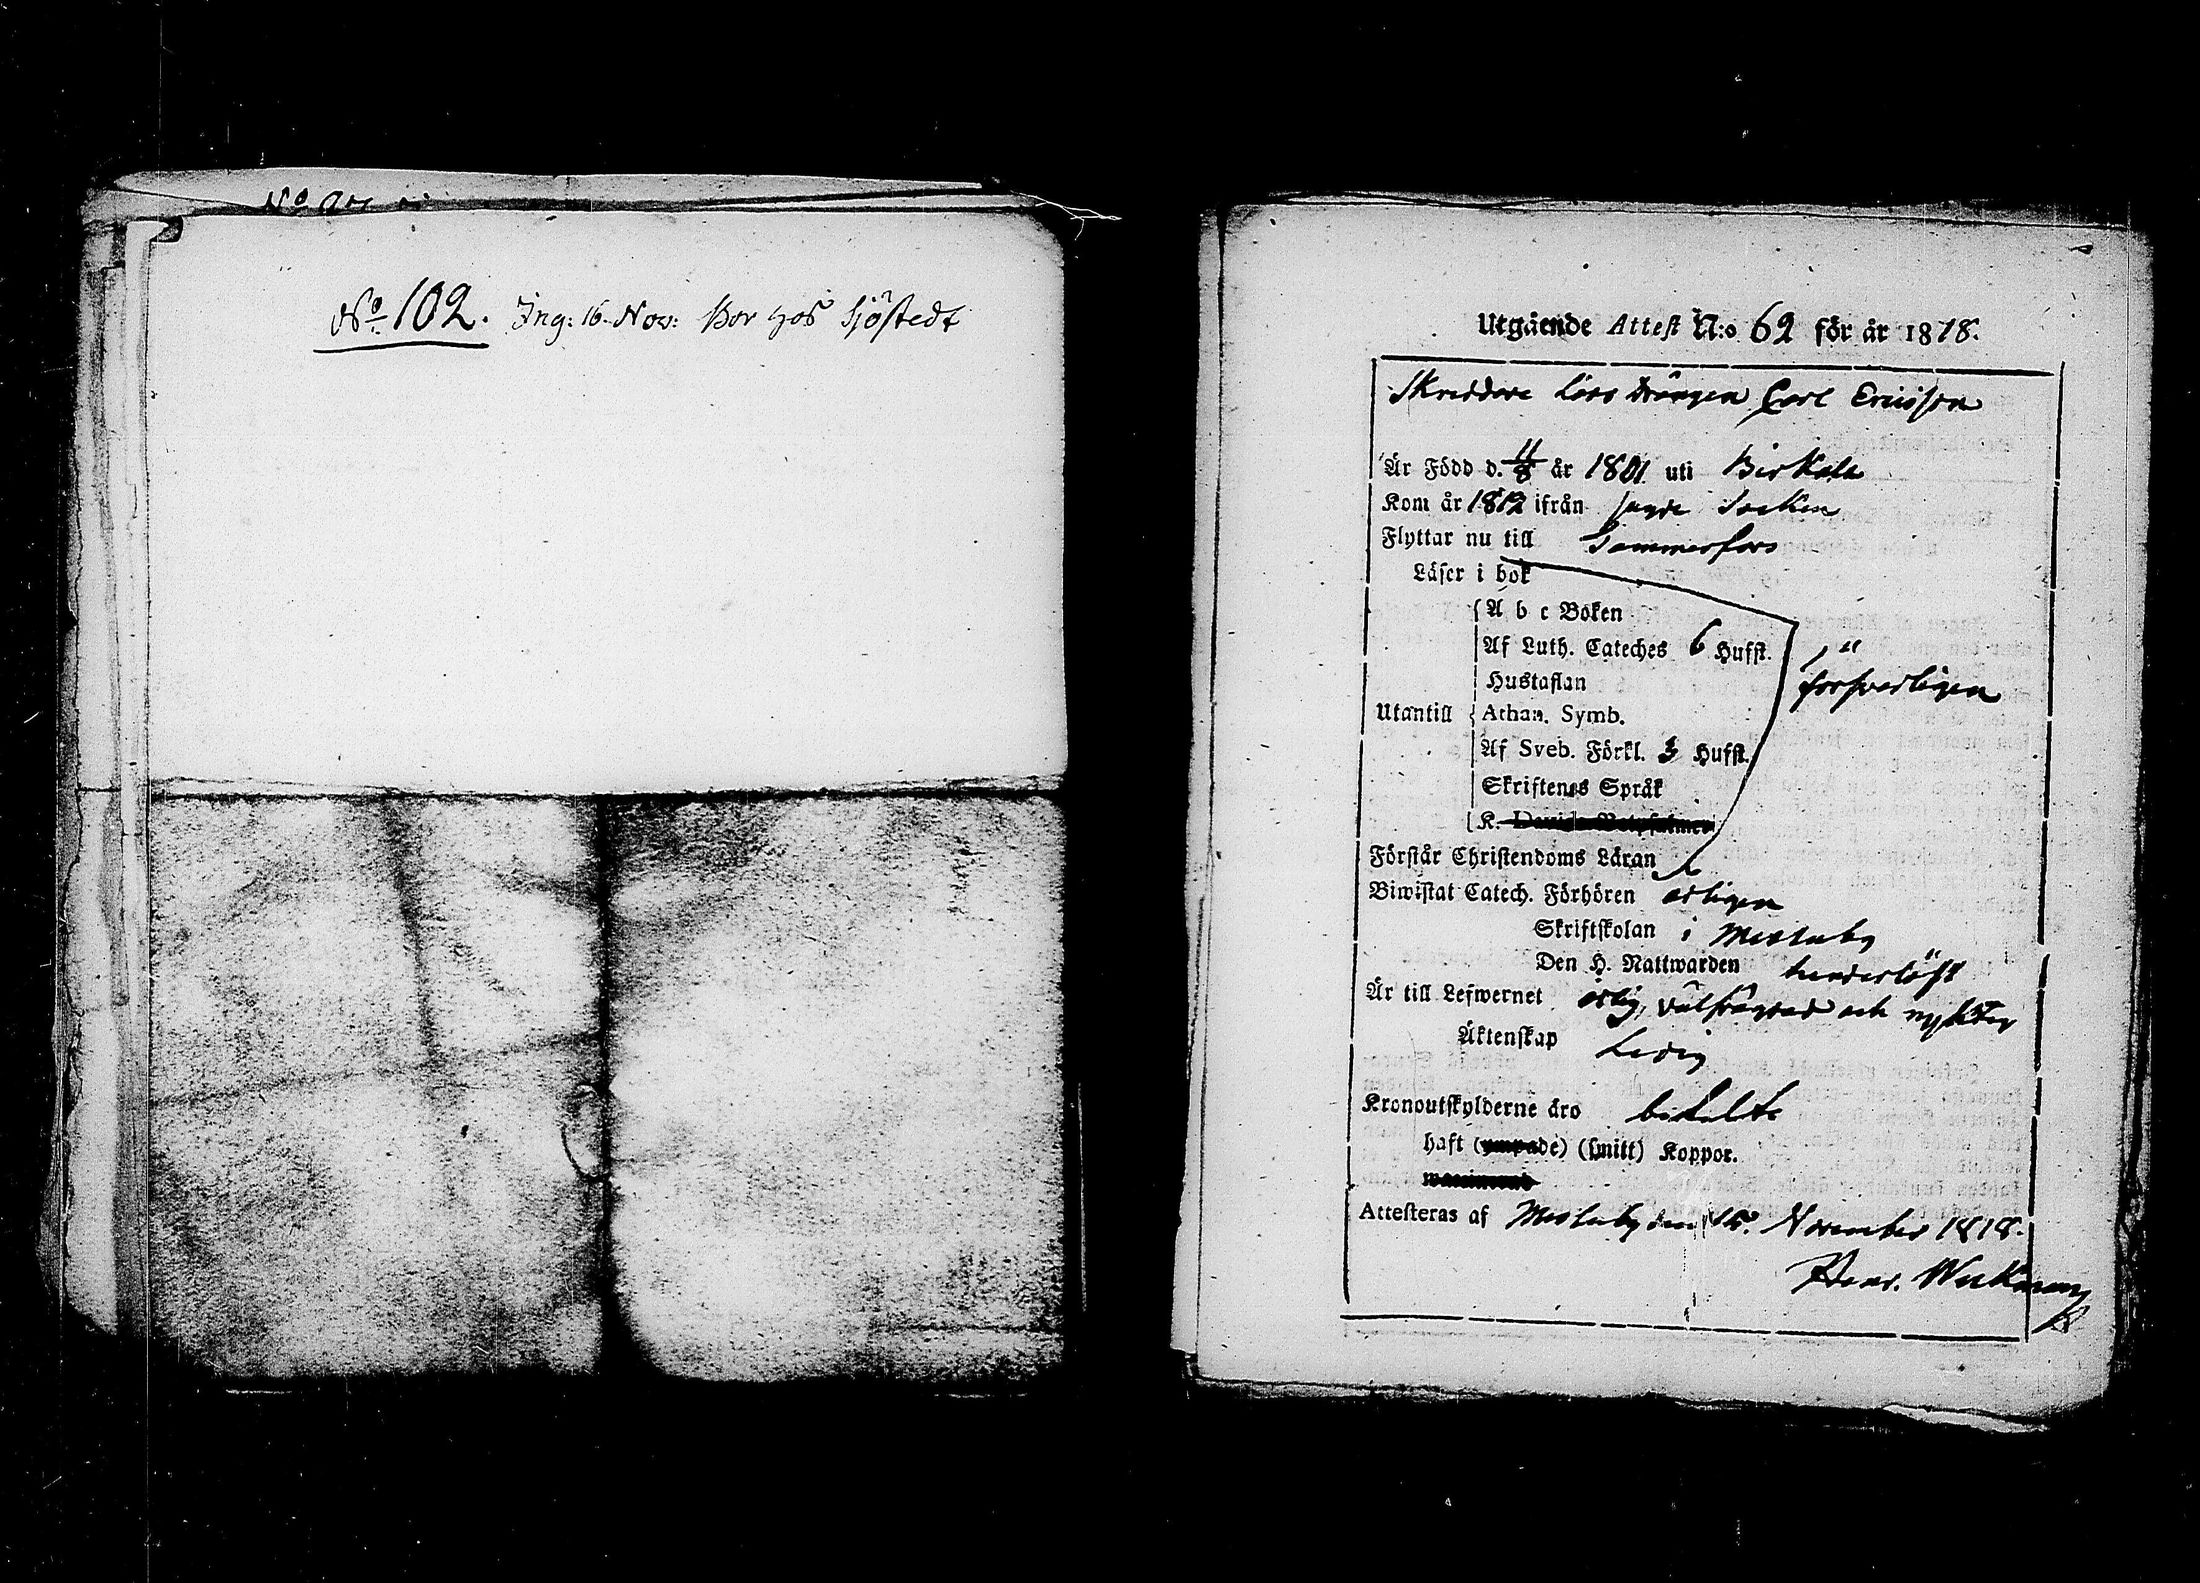 No 102. Ing: 16. Nov: Bor hos Sjöstedt
Utgående Attest N:o 62 för år 1818.
Skreddare Läro Drängen Carl Ericsson
Är Född d. 11/8 år 1801 uti Birkala
Kom år 1812 ifrån sagde Socken
Flyttar nu till Tammerfors
Läser i bok
A b c Boken
Af Luth. Cateches 6 Hufst.
Hustaflan
försvarligen
Utantill Athan. Symb.
Af Sveb. Förkl. 3 Hufst.
Skriftenes Språk
K. Davids Botpsalmer
Förstår Christendoms Läran
Biwistat Catech. Förhören årligen
Skriftskolan i Messuby
Den H. Nattwarden
Är till Lefwernet ärlig, välfrägdad och nykter
Äktenskap Ledig
Kronoutskylderne äro betalte
haft (ympade) (smitt) Koppor.
Attesteras af Messuby den 15. November 1818.